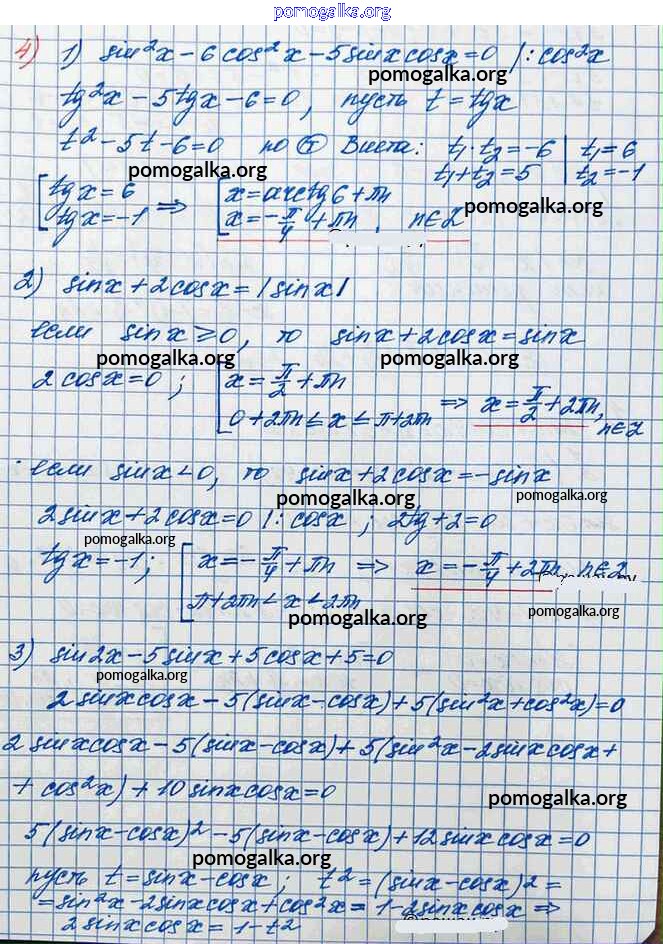 pomogalka.org
4) 1) sin²x - 6cos²x - 5sinxcosx = 0 /: cos²x
pomogalka.org
tg²x - 5tgx - 6 = 0, пусть t = tgx
t² - 5t - 6 = 0 по Т Виета: t₁·t₂ = -6 | t₁ = 6
pomogalka.org t₁+t₂ = 5 | t₂ = -1
[tgx = 6 => [x = arctg6 + πn pomogalka.org
[tgx = -1 [x = -π/4 + πn, n∈Z
2) sinx + 2cosx = /sinx/
pomogalka.org
если sinx ≥ 0, то sinx + 2cosx = sinx
pomogalka.org pomogalka.org
2cosx = 0; [x = π/2 + πn => x = π/2 + 2πn,
[0 + 2πn ≤ x ≤ π + 2πn n∈Z
если sinx < 0, то sinx + 2cosx = -sinx
pomogalka.org pomogalka.org
2sinx + 2cosx = 0 /: cosx; 2tg + 2 = 0
pomogalka.org
tgx = -1; [x = -π/4 + πn => x = -π/4 + 2πn, n∈Z
[π + 2πn < x < 2πn
pomogalka.org pomogalka.org
3) sin2x - 5sinx + 5cosx + 5 = 0
pomogalka.org
2sinxcosx - 5(sinx - cosx) + 5(sin²x + cos²x) = 0
2sinxcosx - 5(sinx - cosx) + 5(sin²x - 2sinxcosx +
+ cos²x) + 10sinxcosx = 0
pomogalka.org
5(sinx - cosx)² - 5(sinx - cosx) + 12sinxcosx = 0
pomogalka.org
пусть t = sinx - cosx; t² = (sinx - cosx)² =
= sin²x - 2sinxcosx + cos²x = 1 - 2sinxcosx =>
2sinxcosx = 1 - t²